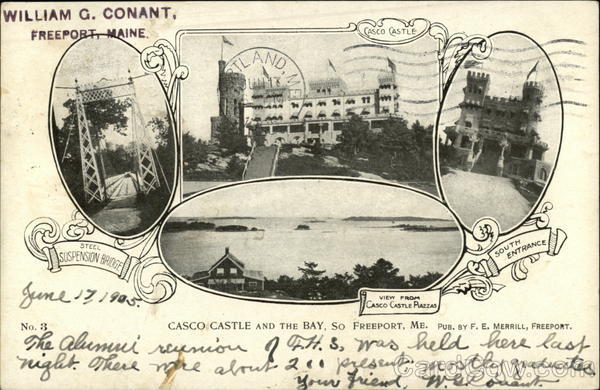 WILLIAM G. CONANT,
FREEPORT, MAINE.
CASCO CASTLE
TLAND, ME
STEEL
SUSPENSION BRIDGE
SOUTH ENTRANCE
VIEW FROM
CASCO CASTLE PIAZZAS
June 17, 1905.
No. 3
CASCO CASTLE AND THE BAY, SO FREEPORT, ME. PUB. BY F. E. MERRILL, FREEPORT.
The Alumni reunion of F.H.S. was held here last
night. There were about 200 present
Your friend, W. G. Conant
CardCow.com